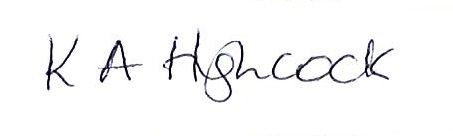 K A Highcock